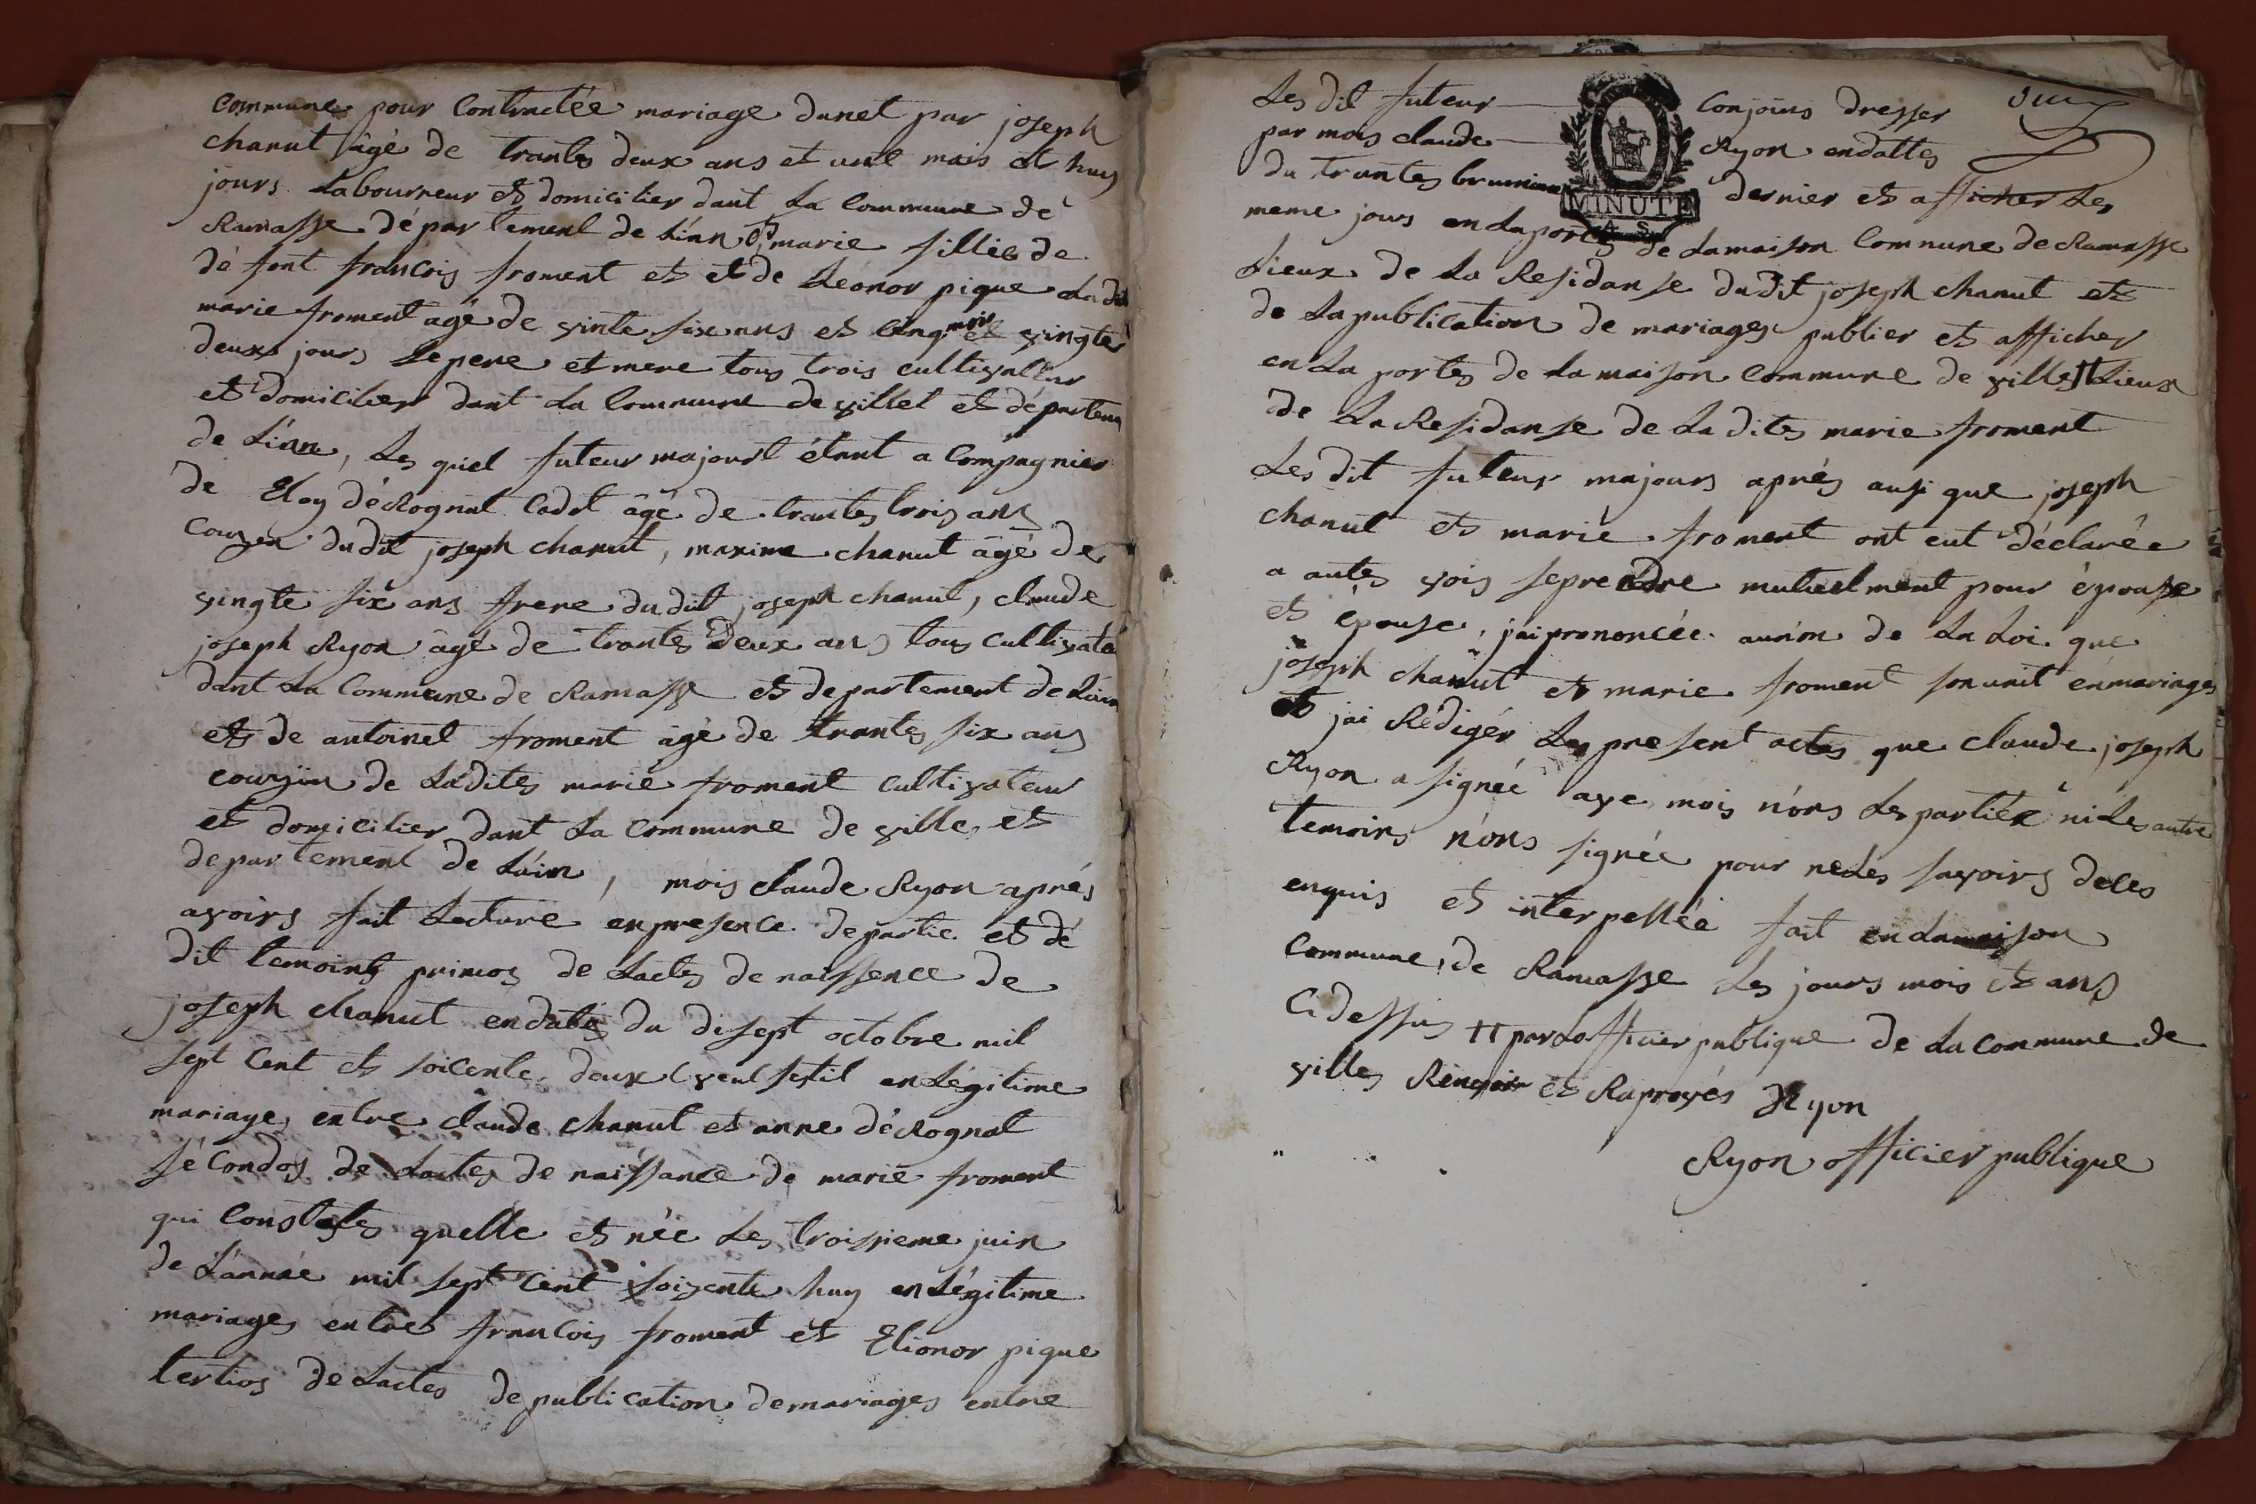 commune pour Contractéé mariage dunet par joseph
chanut âgé de trantes deux ans et unt mois et huy
jours Labourreur et domicilier dant La Commune de
Ramasse département de Léinn et marie fillies de
dé font françois froment et et de Léonor pique La dit
marie froment agé de vinte six ans et Cinq mois et vingtes
deux jours Le pere et mere tous trois cultivateur
et domicilier dant La Commune de villet et départem
de Léinn, Les quiel futeur majourt étant a Compagnier
de Eloy décRognat Cadet âgé de trantes trois ans
Couzen du dit joseph chanut, maxime chanut âgé de
vingte six ans frere du dit joseph chanut, claude
joseph Ryon âgé de trantes deux ans tous cultivate
dant La Commune de Ramasse et departement de Lain
et de antoinet froment âgé de trantes six ans
couzjin de Ladites marie froment cultivateur
et domicilier dant La commune de villes et
departement de Láin, mois claude Ryon aprés
avoirs fait Lecture en presence de partie et dé
dit temoints primos de Lactes de naissence de
joseph chanut en dates du disept octobre mil
sept Cent et soicente deux en Légitime
mariage entre claude chanut et anne décRognat
sé condos de Lactes de naissance de marie froment
qui Constates quelle et née Les troissieme juin
de Lánnée mil sept Cent soizente huy en Légitime
mariages entres françois froment et Elionor pique
tertios de Lactes de publication de mariages entre
Les dit futeur Conjoins dresser
par mois claude Ryon en dattes
du trantes brumaire dernier et afficher Les
MINUTE
meme jours en La portes de La maison Commune de Ramasse
Lieux de La Residanse du dit joseph chanut et
de La publication de mariages publier et afficher
en La portes de La maison commune de villes Lieux
de La Residanse de La dites marie froment
Les dit futeur majours aprés ausi que joseph
chanut et marié froment ont eut déclarée
a autes vois se prendre mutuelment pour épouse
et épouse, jai prononcée aunom de La Loi que
joseph chanut et marie froment son unit en mariages
et jai Rédigér Les present actes que claude joseph
Ryon a signéé ave mois n'ons Les partiéx ni Les autre
temoins n'ons signée pour ne Les savoirs de Les
enquis et interpelléé fait en La maison
Commune, de Ramasse Les jours mois et ans
Cidessus par Lofficier publique de La commune de
villes Renvoir et Raprovés Ryon
Ryon officier publique